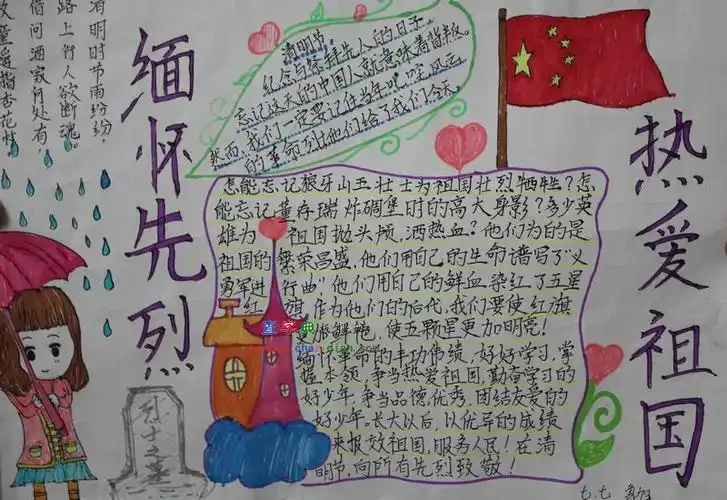 清明时节雨纷纷,
路上行人欲断魂。
借问酒家何处有,
牧童遥指杏花村。
缅怀先烈
清明节。
纪念与缭拜先人的日子。
忘记这天的中国人就意味着背叛。
然而,我们一定要记住当年叱咤风云
的革命烈士他们给了我们今天。
热爱祖国
怎能忘记狼牙山五壮士为祖国壮烈牺牲?怎
能忘记董存瑞炸碉堡时的高大身影?多少英
雄为祖国抛头颅,洒热血?他们为的是
祖国的繁荣昌盛,他们用自己的生命谱写了"义
勇军进行曲"他们用自己的鲜血染红了五星
红旗,作为他们的后代,我们要使红旗
鲜艳,使五颗星更加明亮!
缅怀革命的丰功伟绩,好好学习,掌
握本领,争当热爱祖国,勤奋学习的
好少年。争当品德优秀,团结友爱的
好少年。长大以后,以优异的成绩
来报效祖国,服务人民!在清
明节,向所有先烈致敬!
烈士之墓
查字典
七.七